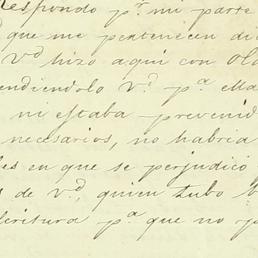 Respondo pr. mi parte
que me pertenecen di
Vd hizo aqui con Ola
endiendolo Vd. pa. ella
ni estaba prevenid
necesarios, no habria
es en que se perjudicó
s de Vd, quien tubo
critura pa. que no